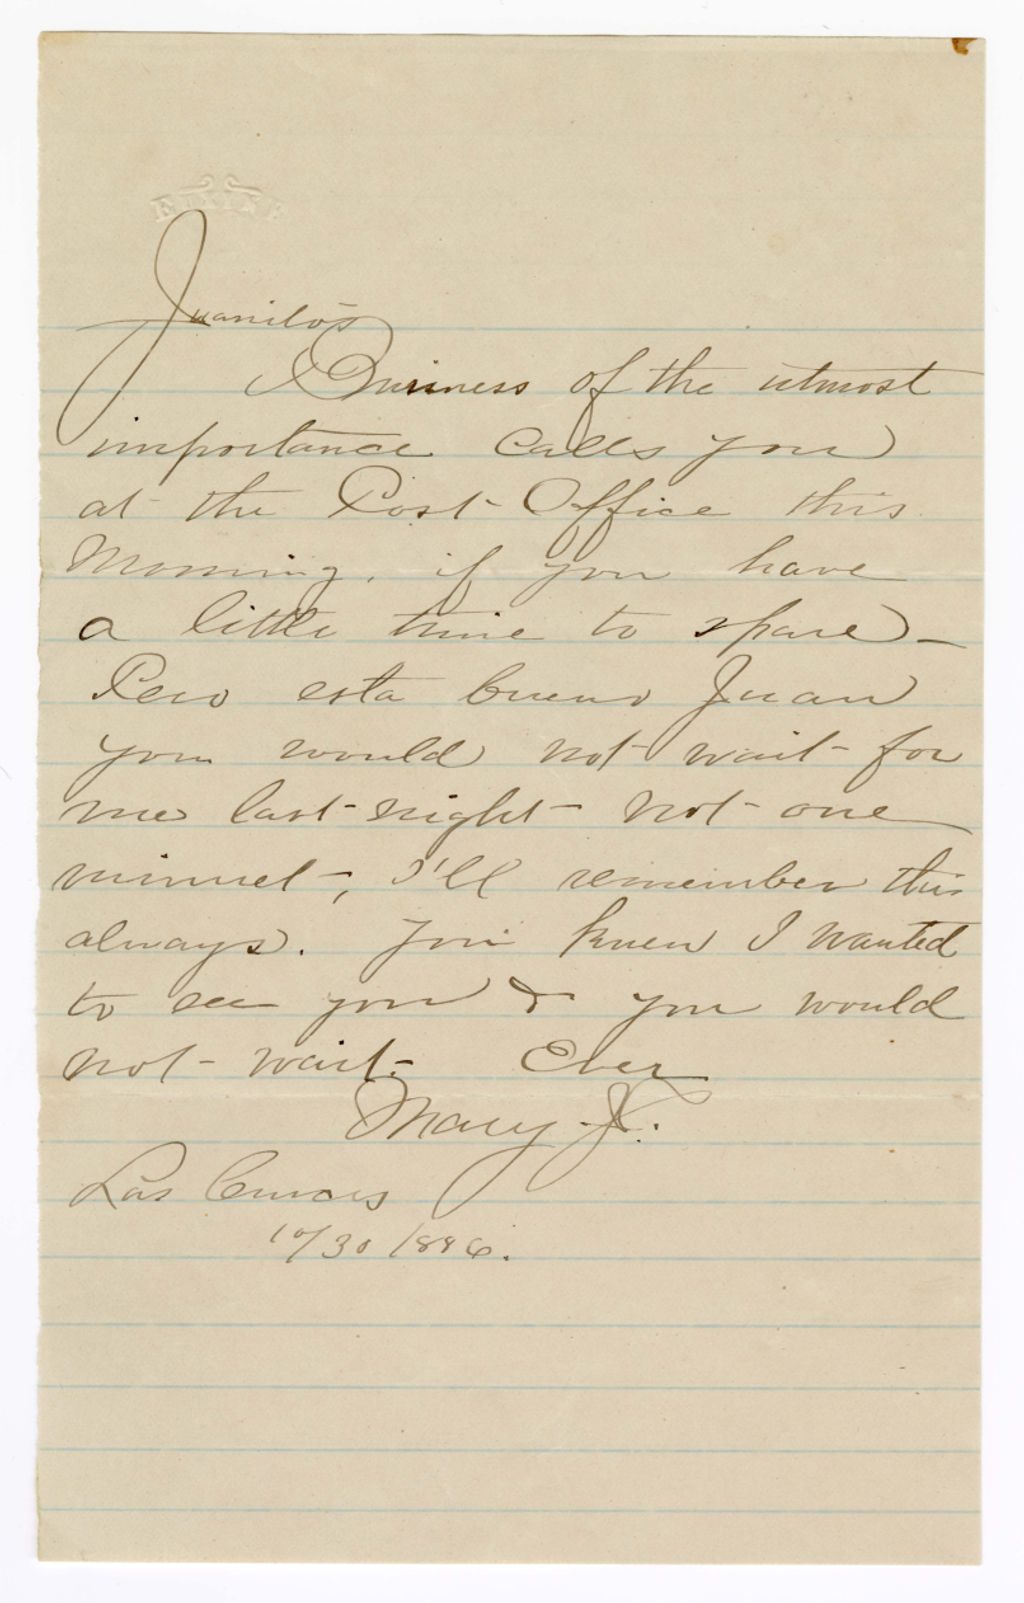 Juanito
Business of the utmost
importance calls you
at the Post Office this
Morning, if you have
a little time to spare –
Pero esta bueno Juan
you would not wait for
me last night not one
minuet, I'll remember this
always. You knew I wanted
to see you & you would
not wait. Ever
Mary J.
Las Cruces
10/30 1886.